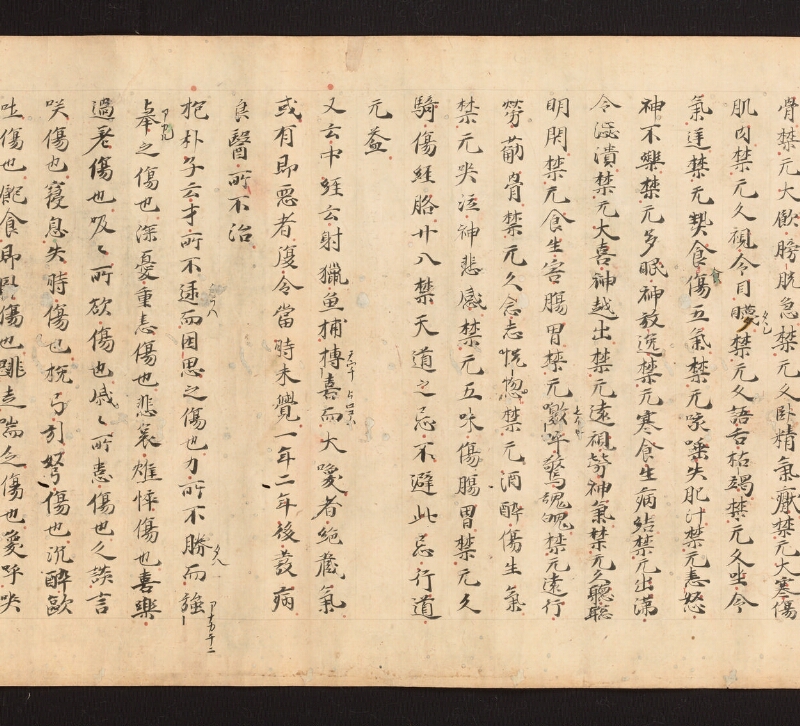 骨禁元大飲膀胱急禁元久臥精氣癈禁元大寒傷
肌肉禁元久視令目䁾禁元久語舌枯竭禁元久坐令
氣逆禁元熱食傷五氣禁元咳唾失肥汁禁元恚怒
神不樂禁元多眠神放逸禁元寒食生病結禁元出潇
令澁潰禁元大喜神越出禁元遠視勞神氣禁元久聽聡
明閇禁元食生害腸胃禁元噭呼驚魂魄禁元遠行
勞筋骨禁元久念志恍惚禁元酒醉傷生氣
禁元哭泣神悲感禁元五味傷腸胃禁元久
騎傷経胳廿八禁天道之忌不避此忌行道
元益
又云中経云射獵魚捕搏喜而大喚者絶蔵氣
或有即惡者復令當時未覺一年二年後發病
良醫所不治
抱朴子云才所不逮而因思之傷也力所不勝而強
擧之傷也深憂重恚傷也悲哀燋悴傷也喜樂
過差傷也汲〻所欲傷也戚〻所患傷也久談言
咲傷也寢息失時傷也挽弓引弩傷也沉醉歐
吐傷也飽食即臥傷也跳走喘乏傷也憂呼哭